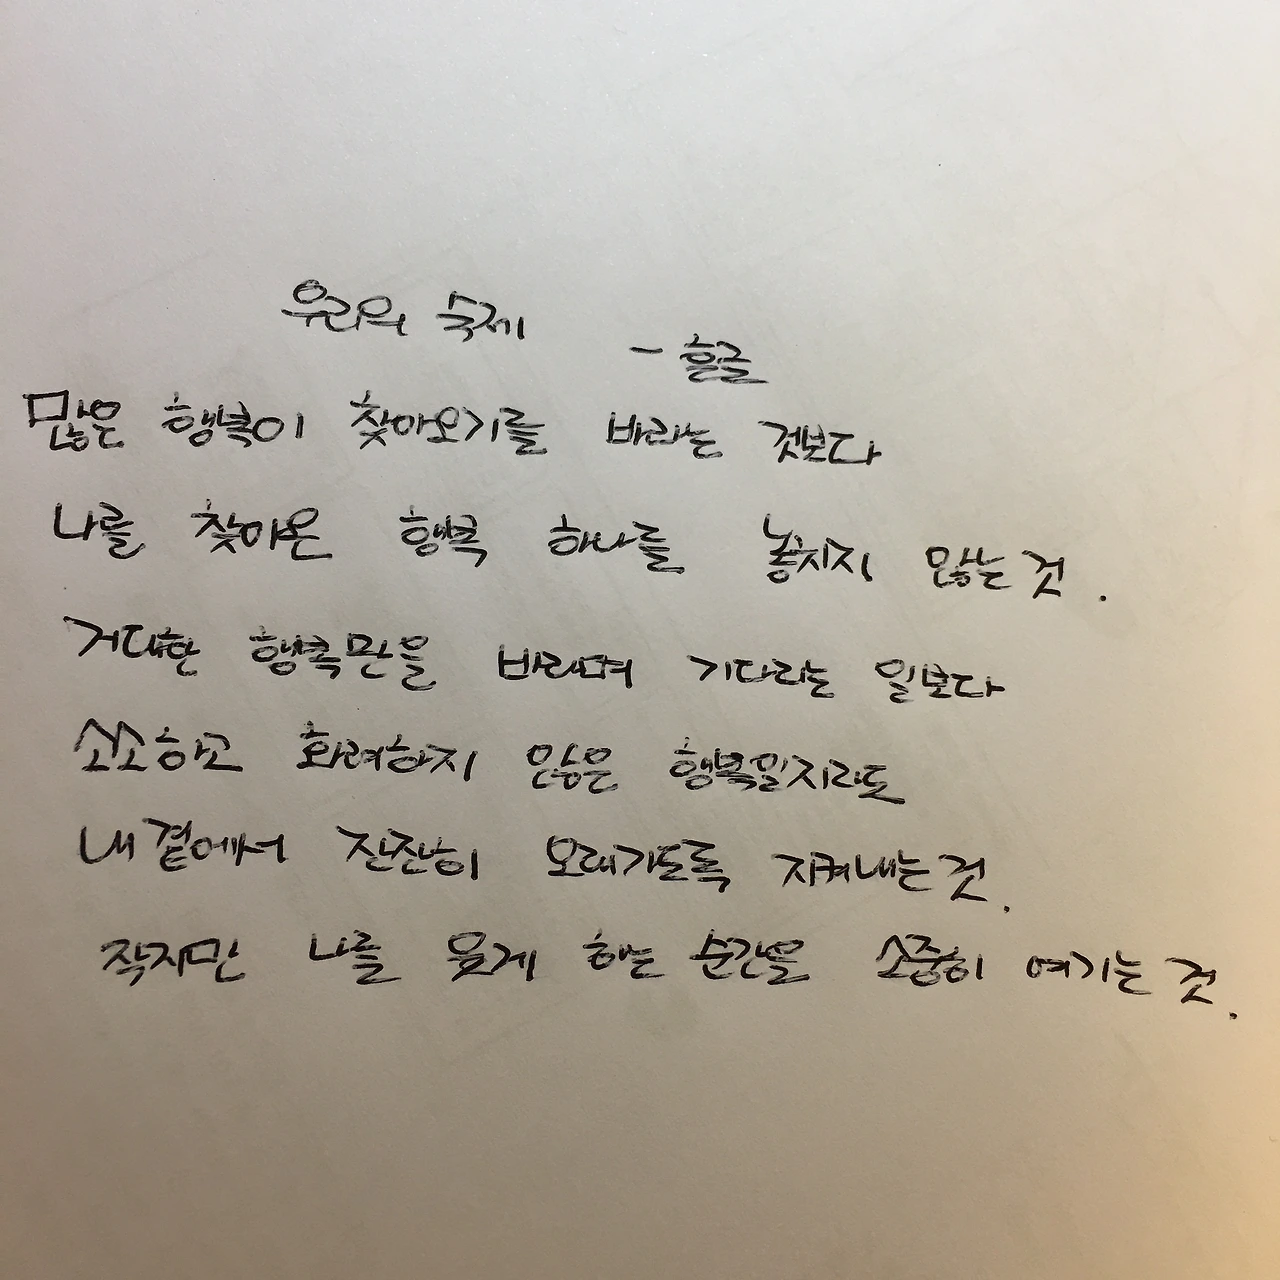 우리의 숙제
- 흔글
많은 행복이 찾아오기를 바라는 것보다
나를 찾아온 행복 하나를 놓치지 않는 것.
거대한 행복만을 바라며 기다리는 일보다
소소하고 화려하지 않은 행복일지라도
내 곁에서 잔잔히 오래가도록 지켜내는 것.
작지만 나를 웃게 하는 순간을 소중히 여기는 것.